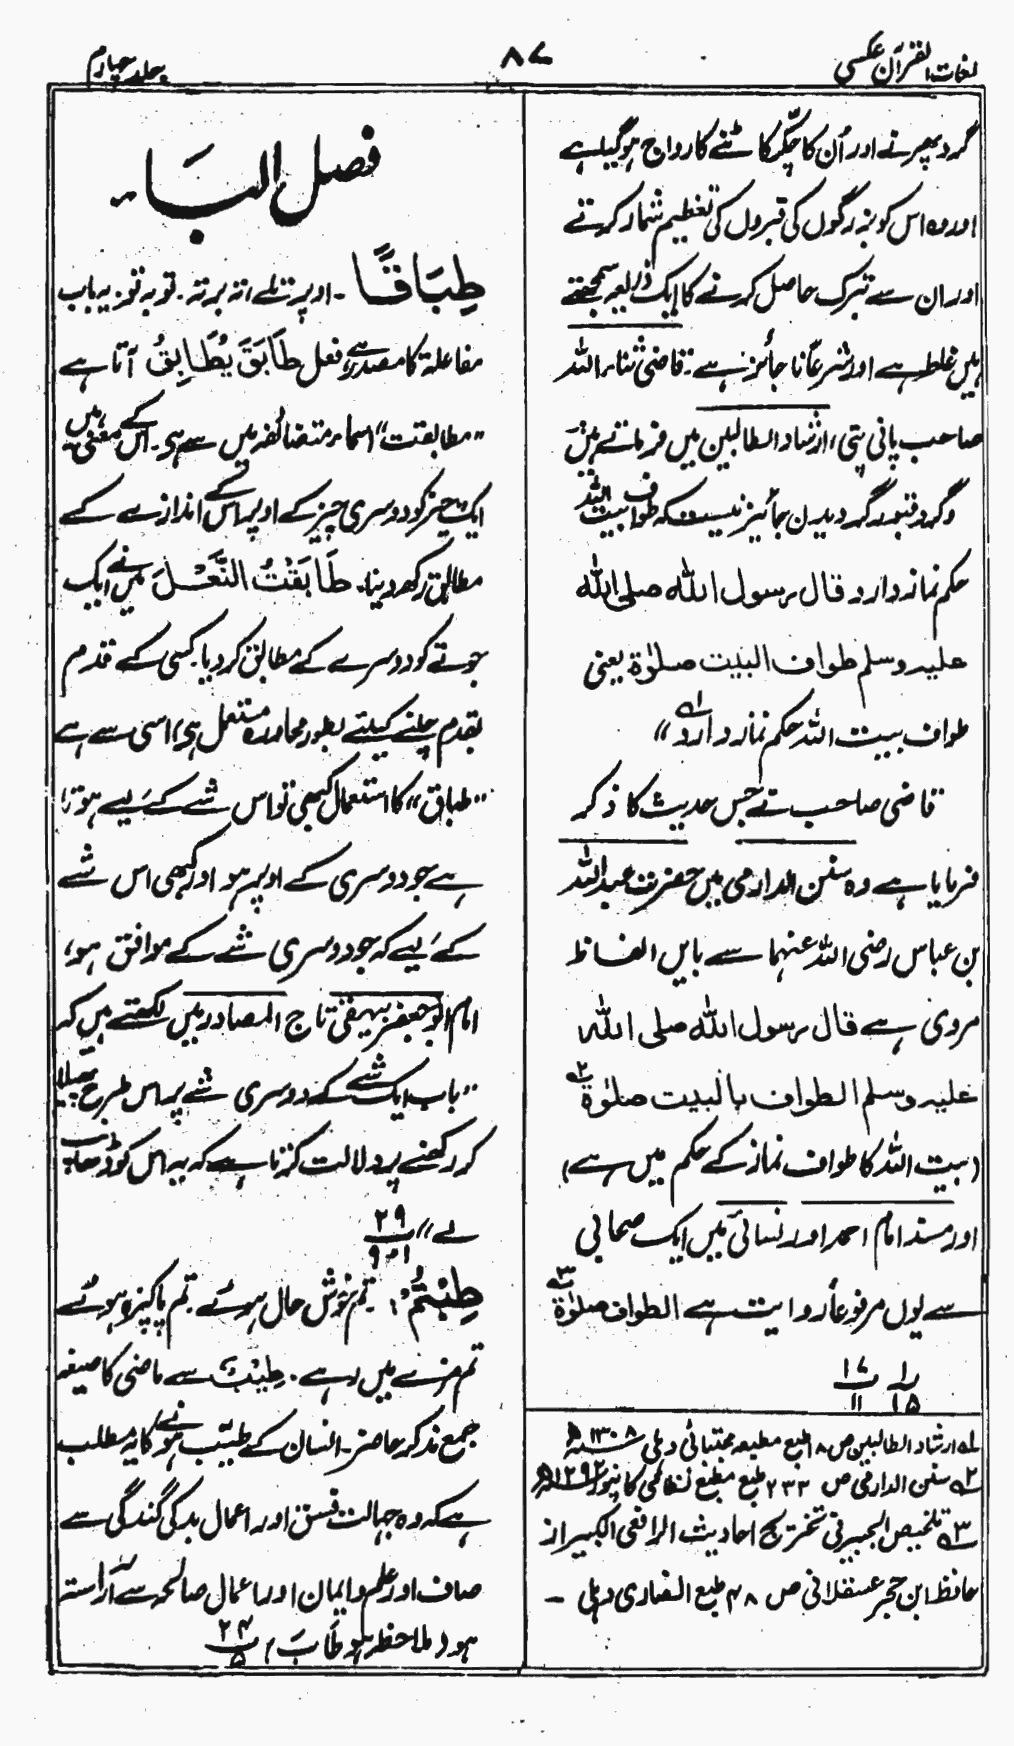 لغات القرآن عکسی
۸۷
جلد چہارم
گرد پھرنے اور اُن کا چکّر کاٹنے کا رواج ہوگیا ہے
اور وہ اس کو بزرگوں کی قبروں کی تعظیم شمار کرتے
اور ان سے تبرک حاصل کرنے کا ایک ذریعہ سمجھتے
ہیں غلط ہے اور شرعاً ناجائز ہے۔ قاضی ثناء اللہ
صاحب پانی پتی، ارشاد الطالبین میں فرماتے ہیں
وگرد قبور گردیدن جائیز نیست کہ طواف بیت اللہ
حکم نماز دارد قال رسول اللہ صلی اللہ
علیہ وسلم طواف البیت صلوٰۃ یعنی
طواف بیت اللہ حکم نماز دارد لہ"
قاضی صاحب نے جس حدیث کا ذکر
فرمایا ہے وہ سنن الدارمی میں حضرت عبداللہ
بن عباس رضی اللہ عنہما سے بایں الفاظ
مروی ہے قال رسول اللہ صلی اللہ
علیہ وسلم الطواف بالبیت صلوٰۃ ۲ہ
(بیت اللہ کا طواف نماز کے حکم میں ہے)
اور مسند امام احمد اور نسائی میں ایک صحابی
سے یوں مرفوعاً روایت ہے الطواف صلوٰۃ ۳ہ
۱ر ۱۷
۱۵ ۱۱
لہ ارشاد الطالبین ص ۱۸ طبع مطبعہ مجتبائی دہلی سنہ ۱۳۰۸ھ
۲ہ سنن الدارمی ص ۲۳۳ طبع مطبع نظامی کانپور سنہ ۱۲۹۲ھ
۳ہ تلخیص الحبیر فی تخریج احادیث الرافعی الکبیر از
حافظ ابن حجر عسقلانی ص ۴۸ طبع انصاری دہلی ۔
فصل الباء
طِبَاقًا ۔ اوپر تلے، تہ بر تہ۔ تو بہ تو۔ یہ باب
مفاعلة کا مصدر ہے، فعل طَابَقَ یُطَابِقُ آتا ہے
"مطابقت" اسماء متضائفہ میں سے ہی۔ اس کے معنی ہیں
ایک چیز کو دوسری چیز کے اوپر اس کے اندازے کے
مطابق رکھ دینا۔ طَابَقْتُ النَّعْلَ میں نے ایک
جوتے کو دوسرے کے مطابق کردیا۔ کسی کے قدم
بقدم چلنے کیلئے بطور محاورہ مستعمل ہی، اسی سے ہے
"طباق" کا استعمال کبھی تو اس شے کے لیے ہوتا
ہے جو دوسری کے اوپر ہو اور کبھی اس شے
کے لیے کہ جو دوسری شے کے موافق ہو،
امام ابو جعفر بیہقی تاج المصادر میں لکھتے ہیں کہ
"باب ایک شے کے دوسری شے پر اس طرح پھیلا
کر رکھنے پر دلالت کرتا ہے کہ یہ اس کو ڈھانپ
لے" ۲۹
۹۔۱
طِبْتُمْ: تم خوش حال ہوئے۔ تم پاکیزہ ہوئے
تم مزے میں رہے۔ طِیْبٌ سے ماضی کا صیغہ
جمع مذکر حاضر۔ انسان کے طیّب ہونے کا یہ مطلب
ہے کہ وہ جہالت فسق اور اعمال بد کی گندگی سے
صاف اور علم و ایمان اور اعمال صالحہ سے آراستہ
ہو (ملاحظہ ہو طَابَ) ۲۴
۵